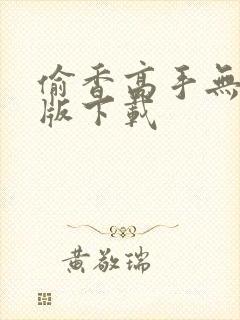 偷香高手無
版下載
黃敬瑞